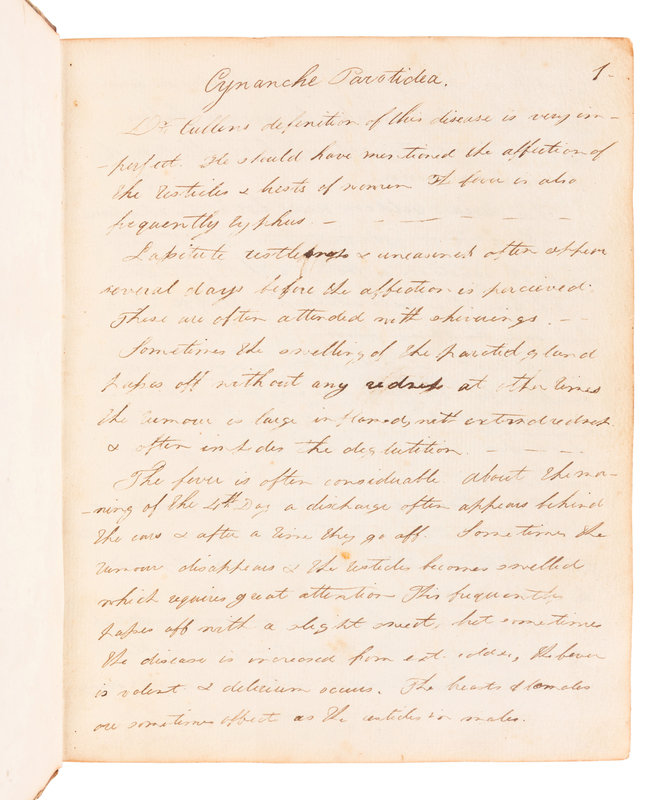 Cynanche Parotidea. 1.
Dr. Cullens definition of this disease is very im-
-perfect. He should have mentioned the affection of
the testicles & breasts of women The fever is also
frequently typhus. - - - - - -
Lassitute restlessness & uneasiness often appear
several days before the affection is perceived.
These are often attended with shiverings. -
Sometimes the swelling of the parotid gland
passes off without any redness at other times
the tumour is large inflamed, with redness
& often impedes the deglutition. - - - -
The fever is often considerable about the mor-
-ning of the 4th Day a discharge often appears behind
the ears & after a time they go off. Sometimes the
tumour disappears & the testicles becomes swelled
which requires great attention This frequently
passes off with a slight sweat, but sometimes
the disease is increased from ext. cold, the fever
is violent & delirium occurs. The breasts of females
are sometimes affect as the testicles in males.